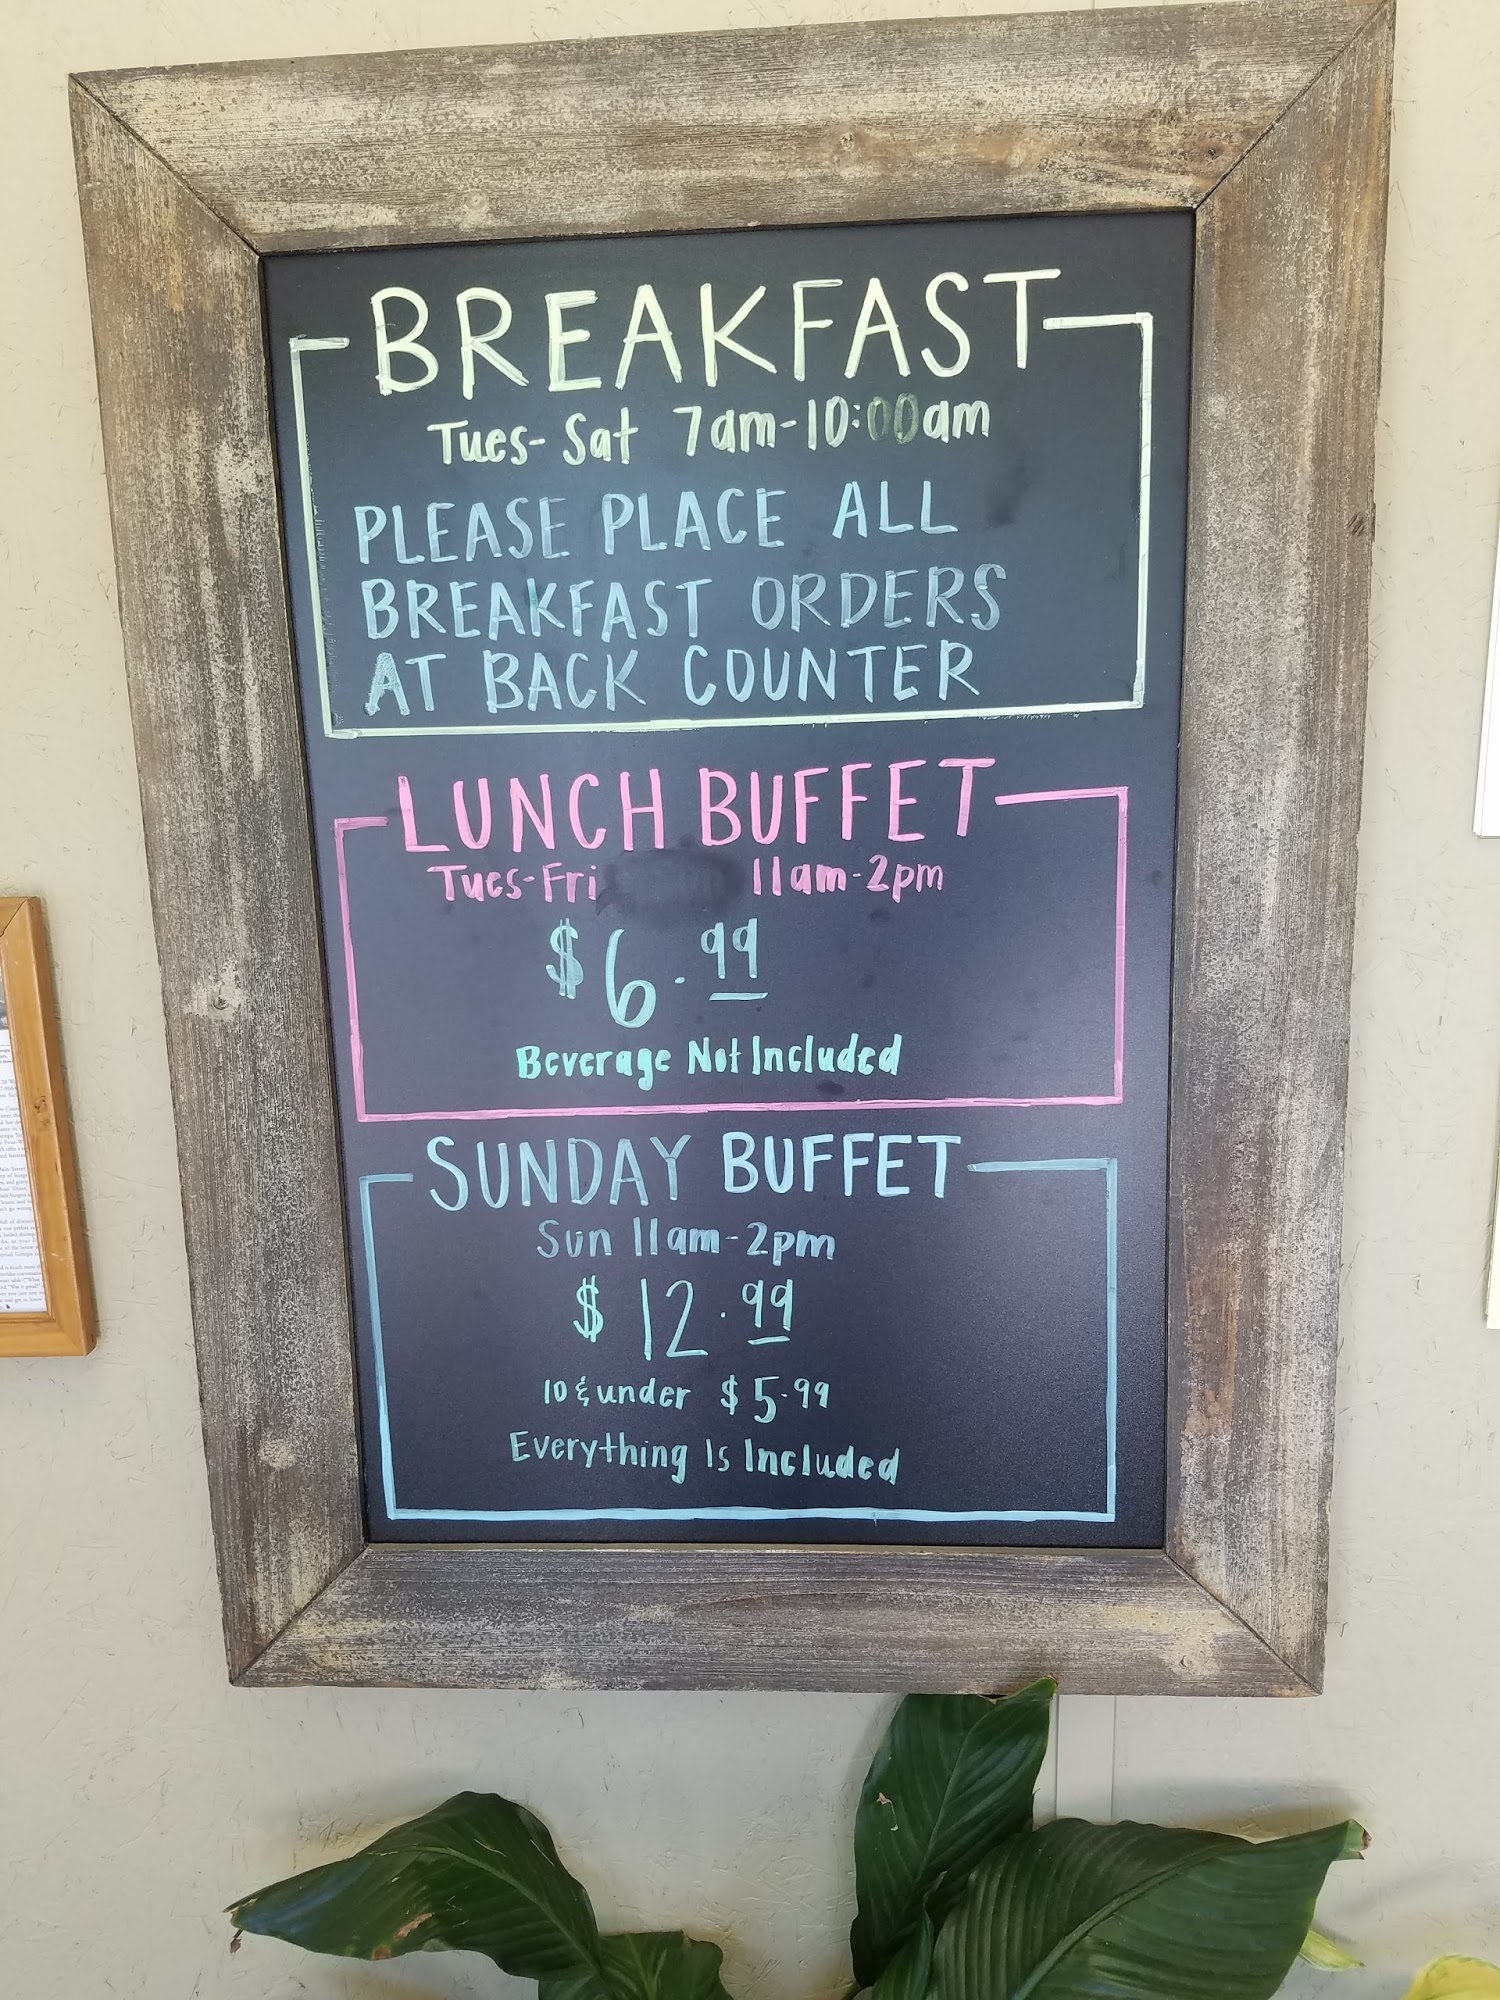 BREAKFAST
Tues-Sat 7am-10:00am
PLEASE PLACE ALL
BREAKFAST ORDERS
AT BACK COUNTER
LUNCH BUFFET
Tues-Fri 11am-2pm
$6.99
Beverage Not Included
SUNDAY BUFFET
Sun 11am-2pm
$12.99
10 & under $5.99
Everything Is Included